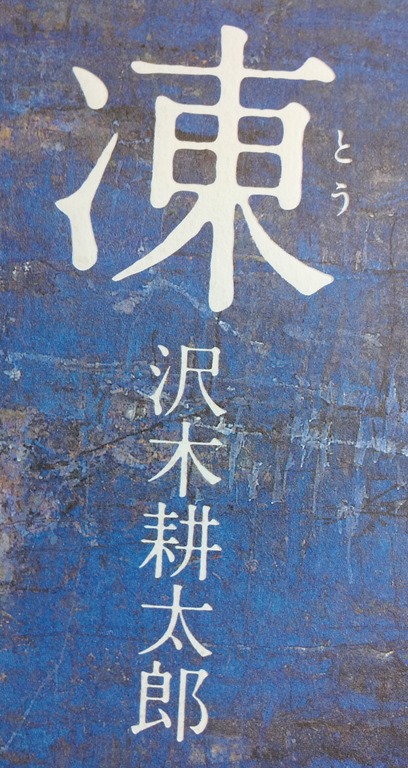 凍
とう
沢木耕太郎